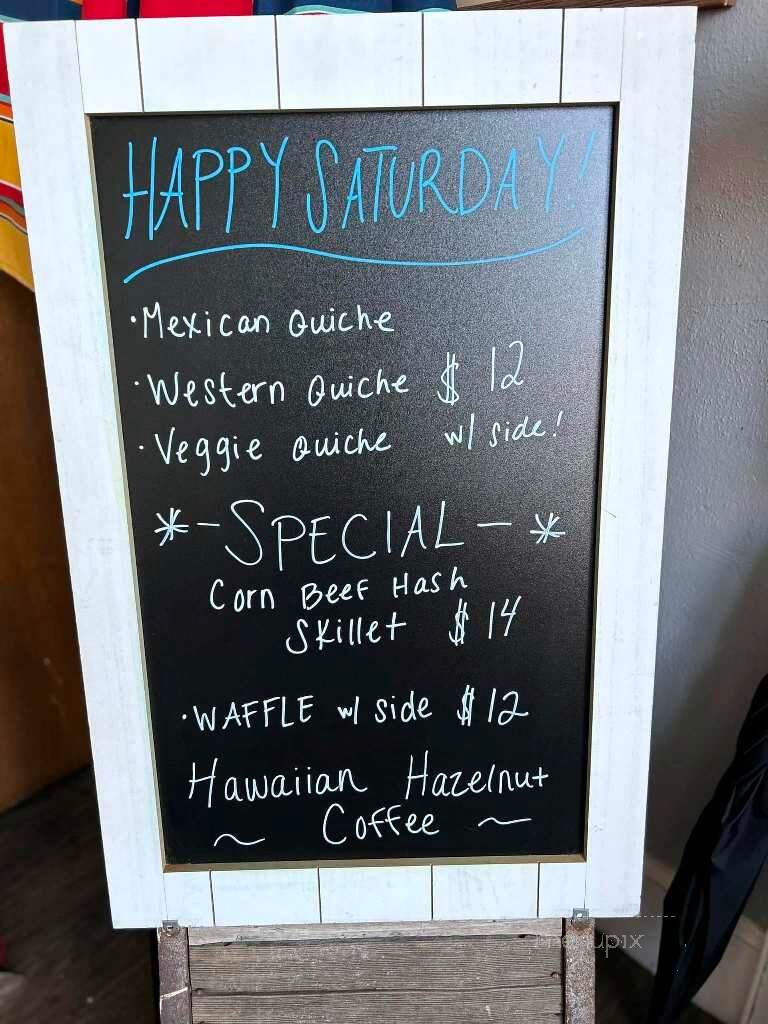 HAPPY SATURDAY!
·Mexican Quiche
·Western Quiche $ 12
·Veggie Quiche w/ side!
*-SPECIAL-*
Corn Beef Hash
Skillet $ 14
·WAFFLE w/ side $12
Hawaiian Hazelnut
~ Coffee ~
menupix